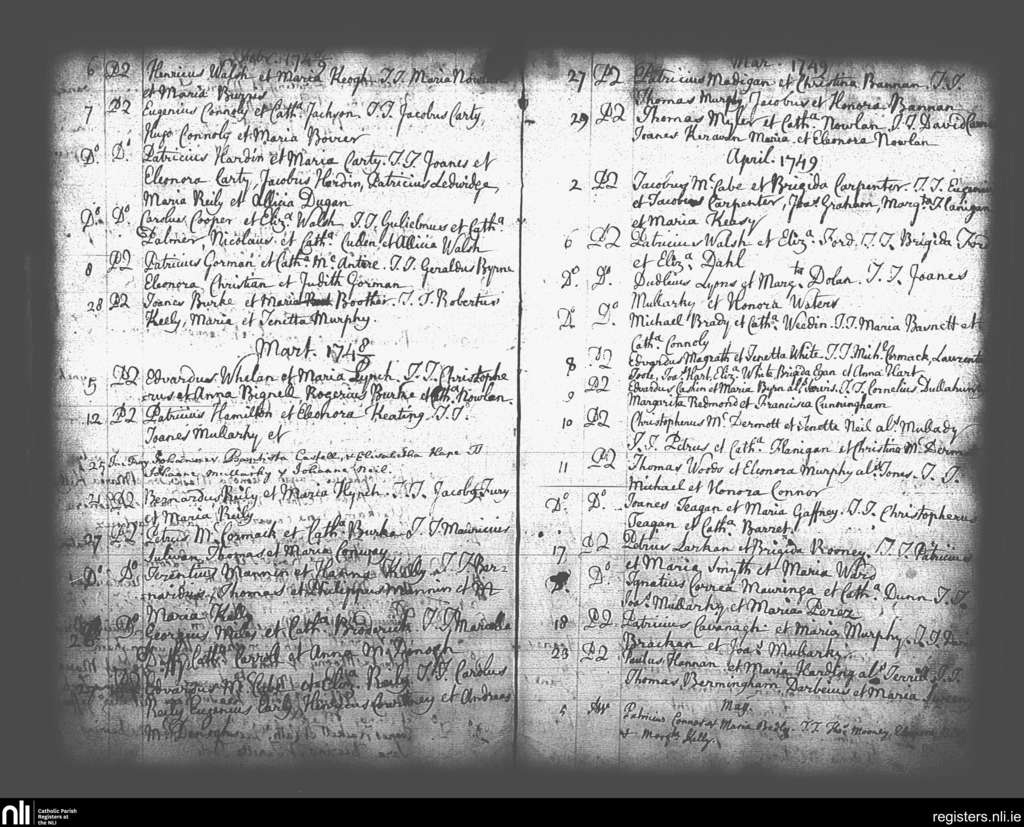 6 P2 Henricus Walsh et Maria Keogh. T.T. Maria Nowlan
et Maria Byrnes
7 P2 Eugenius Connoly et Cath.a Jackson. T.T. Jacobus Carty,
Hugo Connoly et Maria Bovier
D.o D.o Patricius Hardin et Maria Carty. T.T. Joanes et
Eleonora Carty, Jacobus Hardin, Patricius Ledwidge
Maria Reily et Allicia Dugan
D.o D.o Carolus Cooper et Eliz.a Walsh T.T. Gulielmus et Cath.a
Palmer, Nicolaus et Cath.a Cullen, et Allicia Walsh
8 P2 Patricius Gorman et Cath.a McAntere. T.T. Geraldus Byrne
Eleonora Christian et Judith Gorman
28 P2 Joanes Burke et Maria Boother. T.T. Robertus
Keely, Maria et Jenetta Murphy.
Mart. 1748
5 P2 Edvardus Whelan et Maria Lynch. T.T. Christophe
rus et Anna Bignell Rogerius Burke et Cath. Nowlan.
12 P2 Patricius Hamilton et Eleonora Keating. T.T.
Joanes Mullarky et
25 Johannes Baptista Castell & Elisabetha Hope TT
Johanne Mullarky & Johanna Neil.
P2 Bernardus Reily et Maria Flynch. T.T. Jacobus Fury
et Maria Reily
27 P2 Petrus McCormack et Cath.a Burke. T.T. Mauricius
Sulivan, Thomas et Maria Conway
D.o D.o Terentius Mannin et Hanna Kelly. T.T. Ber-
nardus, Thomas, et Philippus Mannin et
Maria Kelly
D.o Georgius Miles et Cath.a Broderick T.T. Marcella
Cath.a Carrol et Anna
P2 Edvardus McCabe et Eliz.a Reily. T.T. Carolus
Reily, Eugenius Carty, Henricus Courtney et Andreas
McDonogh
Mar. 1749
27 P2 Patricius Madigan et Christina Bannan. T.T.
Thomas Murphy Jacobus et Honora Bannan
29 P2 Thomas Myler et Cath.a Nowlan. T.T. David
Joanes Keravan Maria et Eleonora Nowlan
April. 1749
2 P2 Jacobus McCabe et Brigida Carpenter. T.T. Eugenius
et Jacobus Carpenter, Joas Graham, Marg.ta Flanigan
et Maria Keasy
6 P2 Patricius Walsh et Eliz.a Ford. T.T. Brigida Ford
et Eliz.a Dahl
D.o D.o Dudleius Lyons et Marg.ta Dolan. T.T. Joanes
Mullarky et Honora Waters
D.o D.o Michael Brady et Cath.a Weedin. T.T. Maria Basnett et
Cath.a Connoly
8 P2 Edvardus Magrath et Jenetta White. T.T. Mich. Cormack, Laurentius
Toole, Jos. Hart, Eliz.a White Brigida Egan et Anna Hart
9 P2 Edvardus Caskin et Maria Byrn als Jervis. T.T. Cornelius Dullahunt
Margarita Redmond et Francisca Cunningham
10 P2 Christopherus McDermott et Jenette Neil als Mullady
T.T. Petrus et Cath.a Flanigan et Christina McDermott
11 P2 Thomas Woods et Eleonora Murphy als Jones. T.T.
Michael et Honora Connor
D.o D.o Joanes Teagan et Maria Gaffney. T.T. Christopherus
Teagan et Cath.a Barret
17 P2 Petrus Larkan et Brigida Rooney. T.T. Patricius
et Maria Smyth et Maria Ward
D.o D.o Ignatius Correa Mauringa et Cath.a Dunn T.T.
Joas Mullarky et Maria Perez
18 P2 Patricius Cavanagh et Maria Murphy. T.T.
Brackan et Joas Mullarky
23 P2 Paulus Hannan et Maria Harding als Terril. T.T.
Thomas Bermingham, Darbeius et Maria
May.
5 Patricius Connor & Maria Bedly. T.T. Thos Mooney,
& Marg.ta Kelly.
nli Catholic Parish
Registers at
the NLI
registers.nli.ie